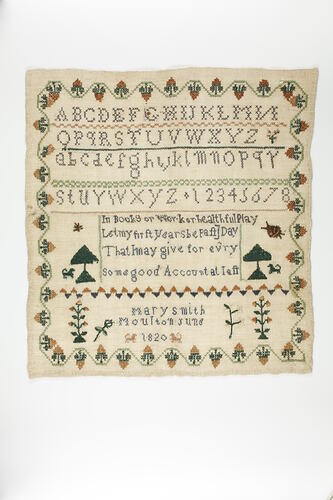 ABCDEFGHIJKLMN
OPQRSTUVWXYZ
abcdefghyklmnopqr
sturwxyz 12345678
In Books or work or healthful Play
Let my first years be past Day
That I may give for ev'ry
Some good Account at last
Mary Smith
Moulton June
1820